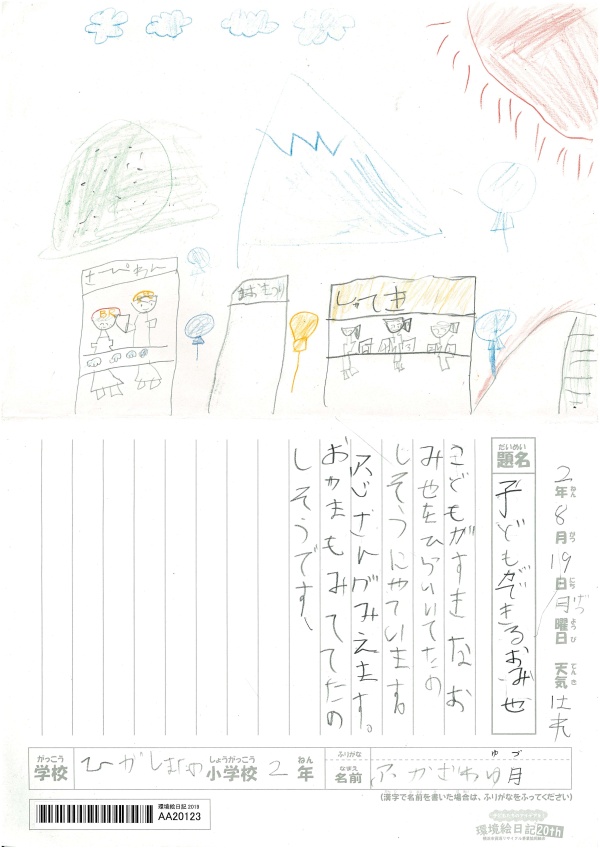 しゃてき
2年ねん8月がつ19日にち月げつ曜日ようび 天気てんき
だいめい
題名
子どもができるおみせ
こどもがすきなお
みせをひらいいてたの
しそうにやています。
ふじさんがみえます。
おかまもみててたの
しそうです、
がっこう 学校 ひがし しょうがっこう 小学校 2 ねん 年
ふりがな ゆづ
なまえ 名前 かざわゆ月
(漢字で名前を書いた場合は、ふりがなをふってください)
環境絵日記 2019
AA20123
環境絵日記20th